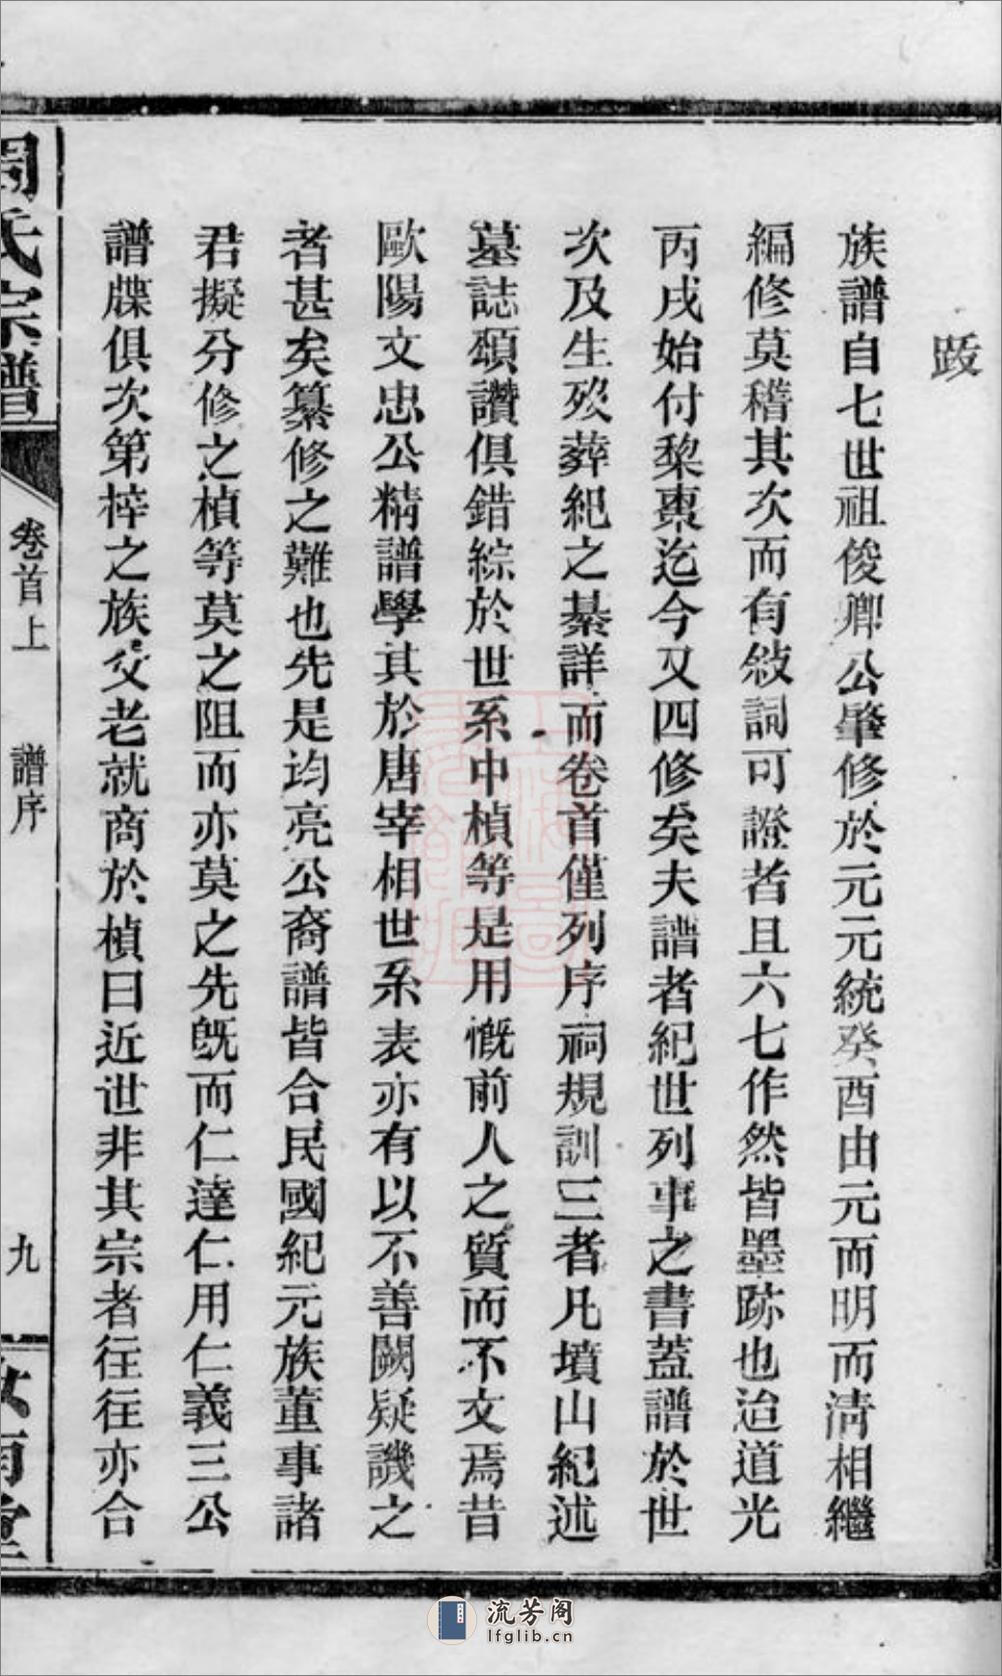 跋
族譜自七世祖俊卿公肇修於元元統癸酉由元而明而清相繼
編修莫稽其次而有敍詞可證者且六七作然皆墨跡也迨道光
丙戌始付棃棗迄今又四修矣夫譜者紀世列事之書蓋譜於世
次及生歿葬紀之綦詳而卷首僅列序祠規訓三者凡墳山紀述
墓誌頌讚俱錯綜於世系中楨等是用慨前人之質而不文焉昔
歐陽文忠公精譜學其於唐宰相世系表亦有以不善闕疑譏之
者甚矣纂修之難也先是均亮公裔譜皆合民國紀元族董事諸
君擬分修之楨等莫之阻而亦莫之先旣而仁達仁用仁義三公
譜牒俱次第梓之族父老就商於楨曰近世非其宗者往往亦合
周氏宗譜
卷首上
譜序
九
汝南堂
流芳阁
lfglib.cn